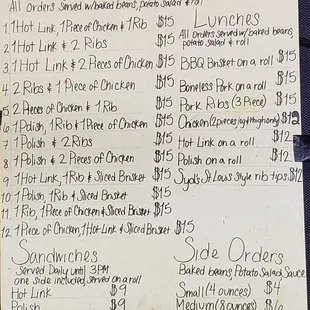 All Orders Served w/baked beans, potato salad & roll
1. 1 Hot Link, 1 Piece of Chicken & 1 Rib $15
2. 1 Hot Link & 2 Ribs $15
3. 1 Hot Link & 2 Pieces of Chicken $15
4. 2 Ribs & 1 Piece of Chicken $15
5. 2 Pieces of Chicken & 1 Rib $15
6. 1 Polish, 1 Rib & 1 Piece of Chicken $15
7. 1 Polish & 2 Ribs $15
8. 1 Polish & 2 Pieces of Chicken $15
9. 1 Hot Link, 1 Rib & Sliced Brisket $15
10. 1 Polish, 1 Rib & Sliced Brisket $15
11. 1 Rib, 1 Piece of Chicken & Sliced Brisket $15
12. 1 Piece of Chicken, 1 Hot Link & Sliced Brisket $15
Lunches
All Orders served w/baked beans,
potato salad & roll
BBQ Brisket on a roll $15
Boneless Pork on a roll $15
Pork Ribs (3 Piece) $15
Chicken (2 pieces leg & thigh only) $12
Hot Link on a roll $12
Polish on a roll $12
Syd's St Louis Style rib tips $12
Sandwiches
Served Daily until 3PM
one side included served on a roll
Hot Link $9
Polish $9
Side Orders
Baked beans, Potato Salad, Sauce
Small (4 ounces) $4
Medium (8 ounces) $6